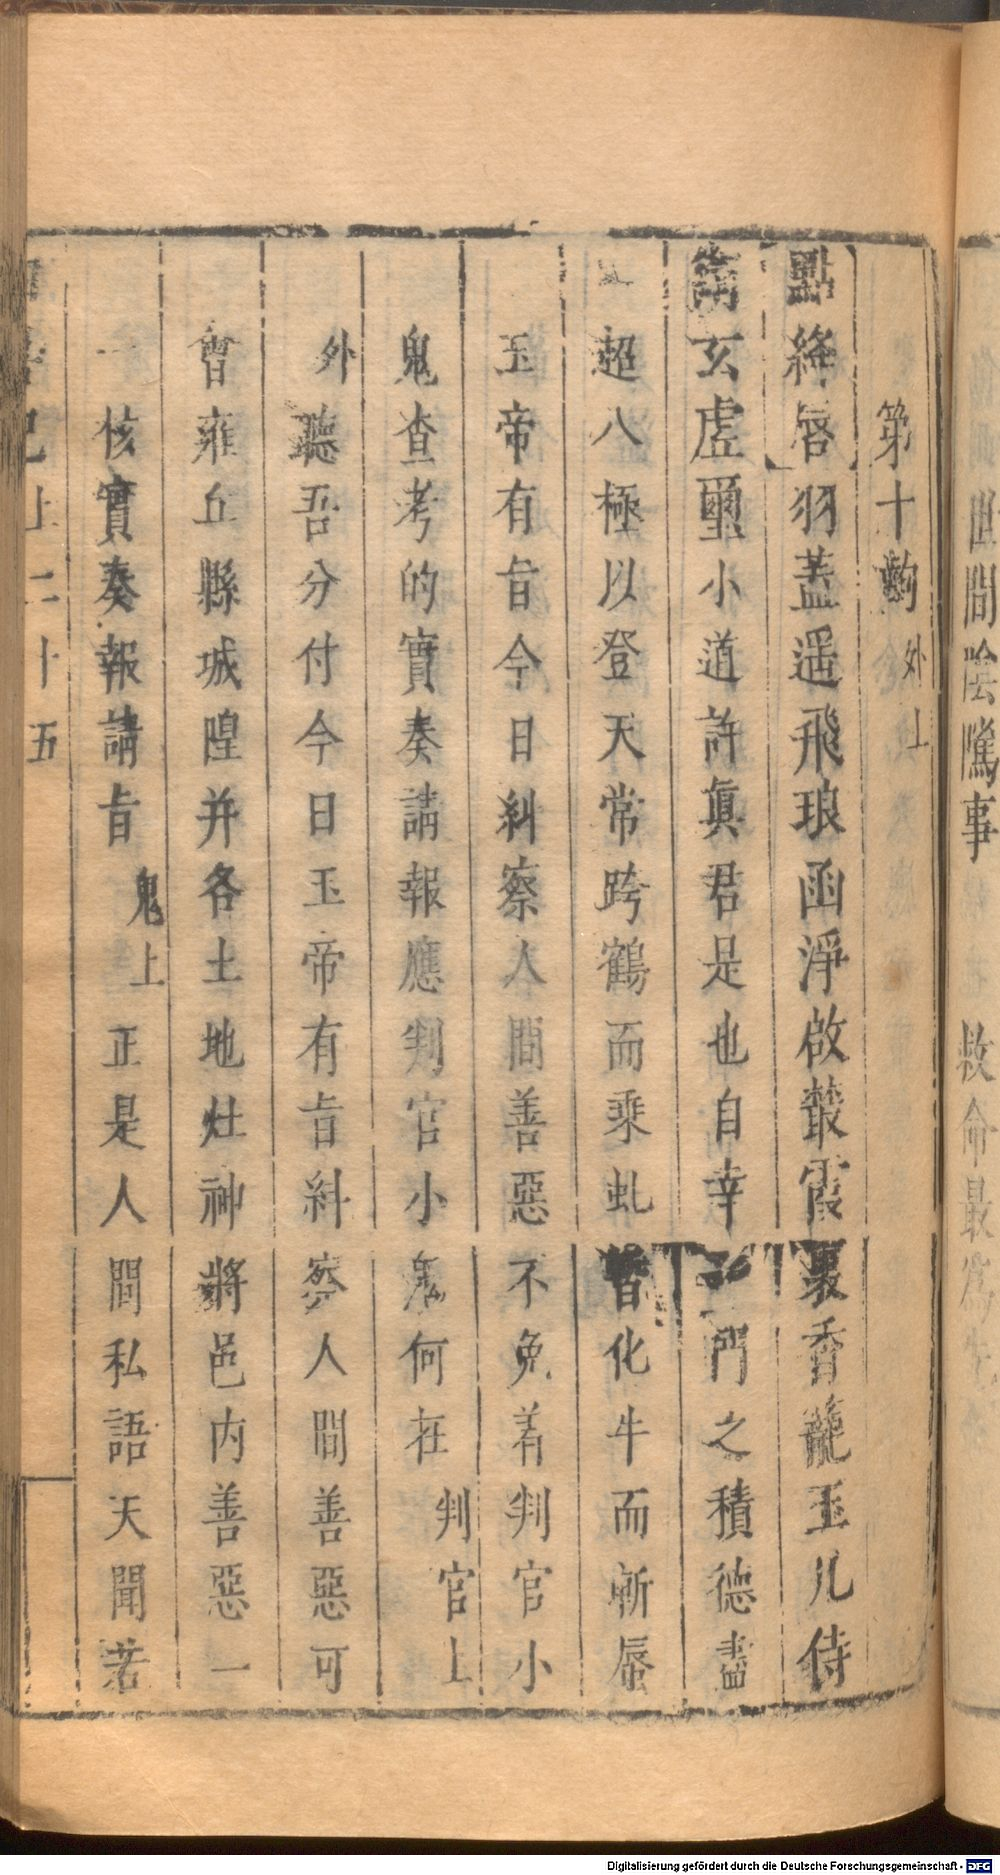 世間陰隲事 救命最爲
第十齣 外上
點絳唇 羽蓋遥飛琅函淨啟叢霞裏香籠玉几侍
玄虛璽小道許眞君是也自幸一門之積德
超八極以登天常跨鶴而乘虬昔化牛而斬蜃
玉帝有旨今日糾察人間善惡不免着判官小
鬼查考的實奏請報應判官小鬼何在 判官上
外 聽吾分付今日玉帝有旨糾察人間善惡可
會雍丘縣城隍并各土地灶神將邑内善惡一
一核實奏報請旨 鬼上 正是人間私語天聞若
記 上 二十五
Digitalisierung gefördert durch die Deutsche Forschungsgemeinschaft - DFG